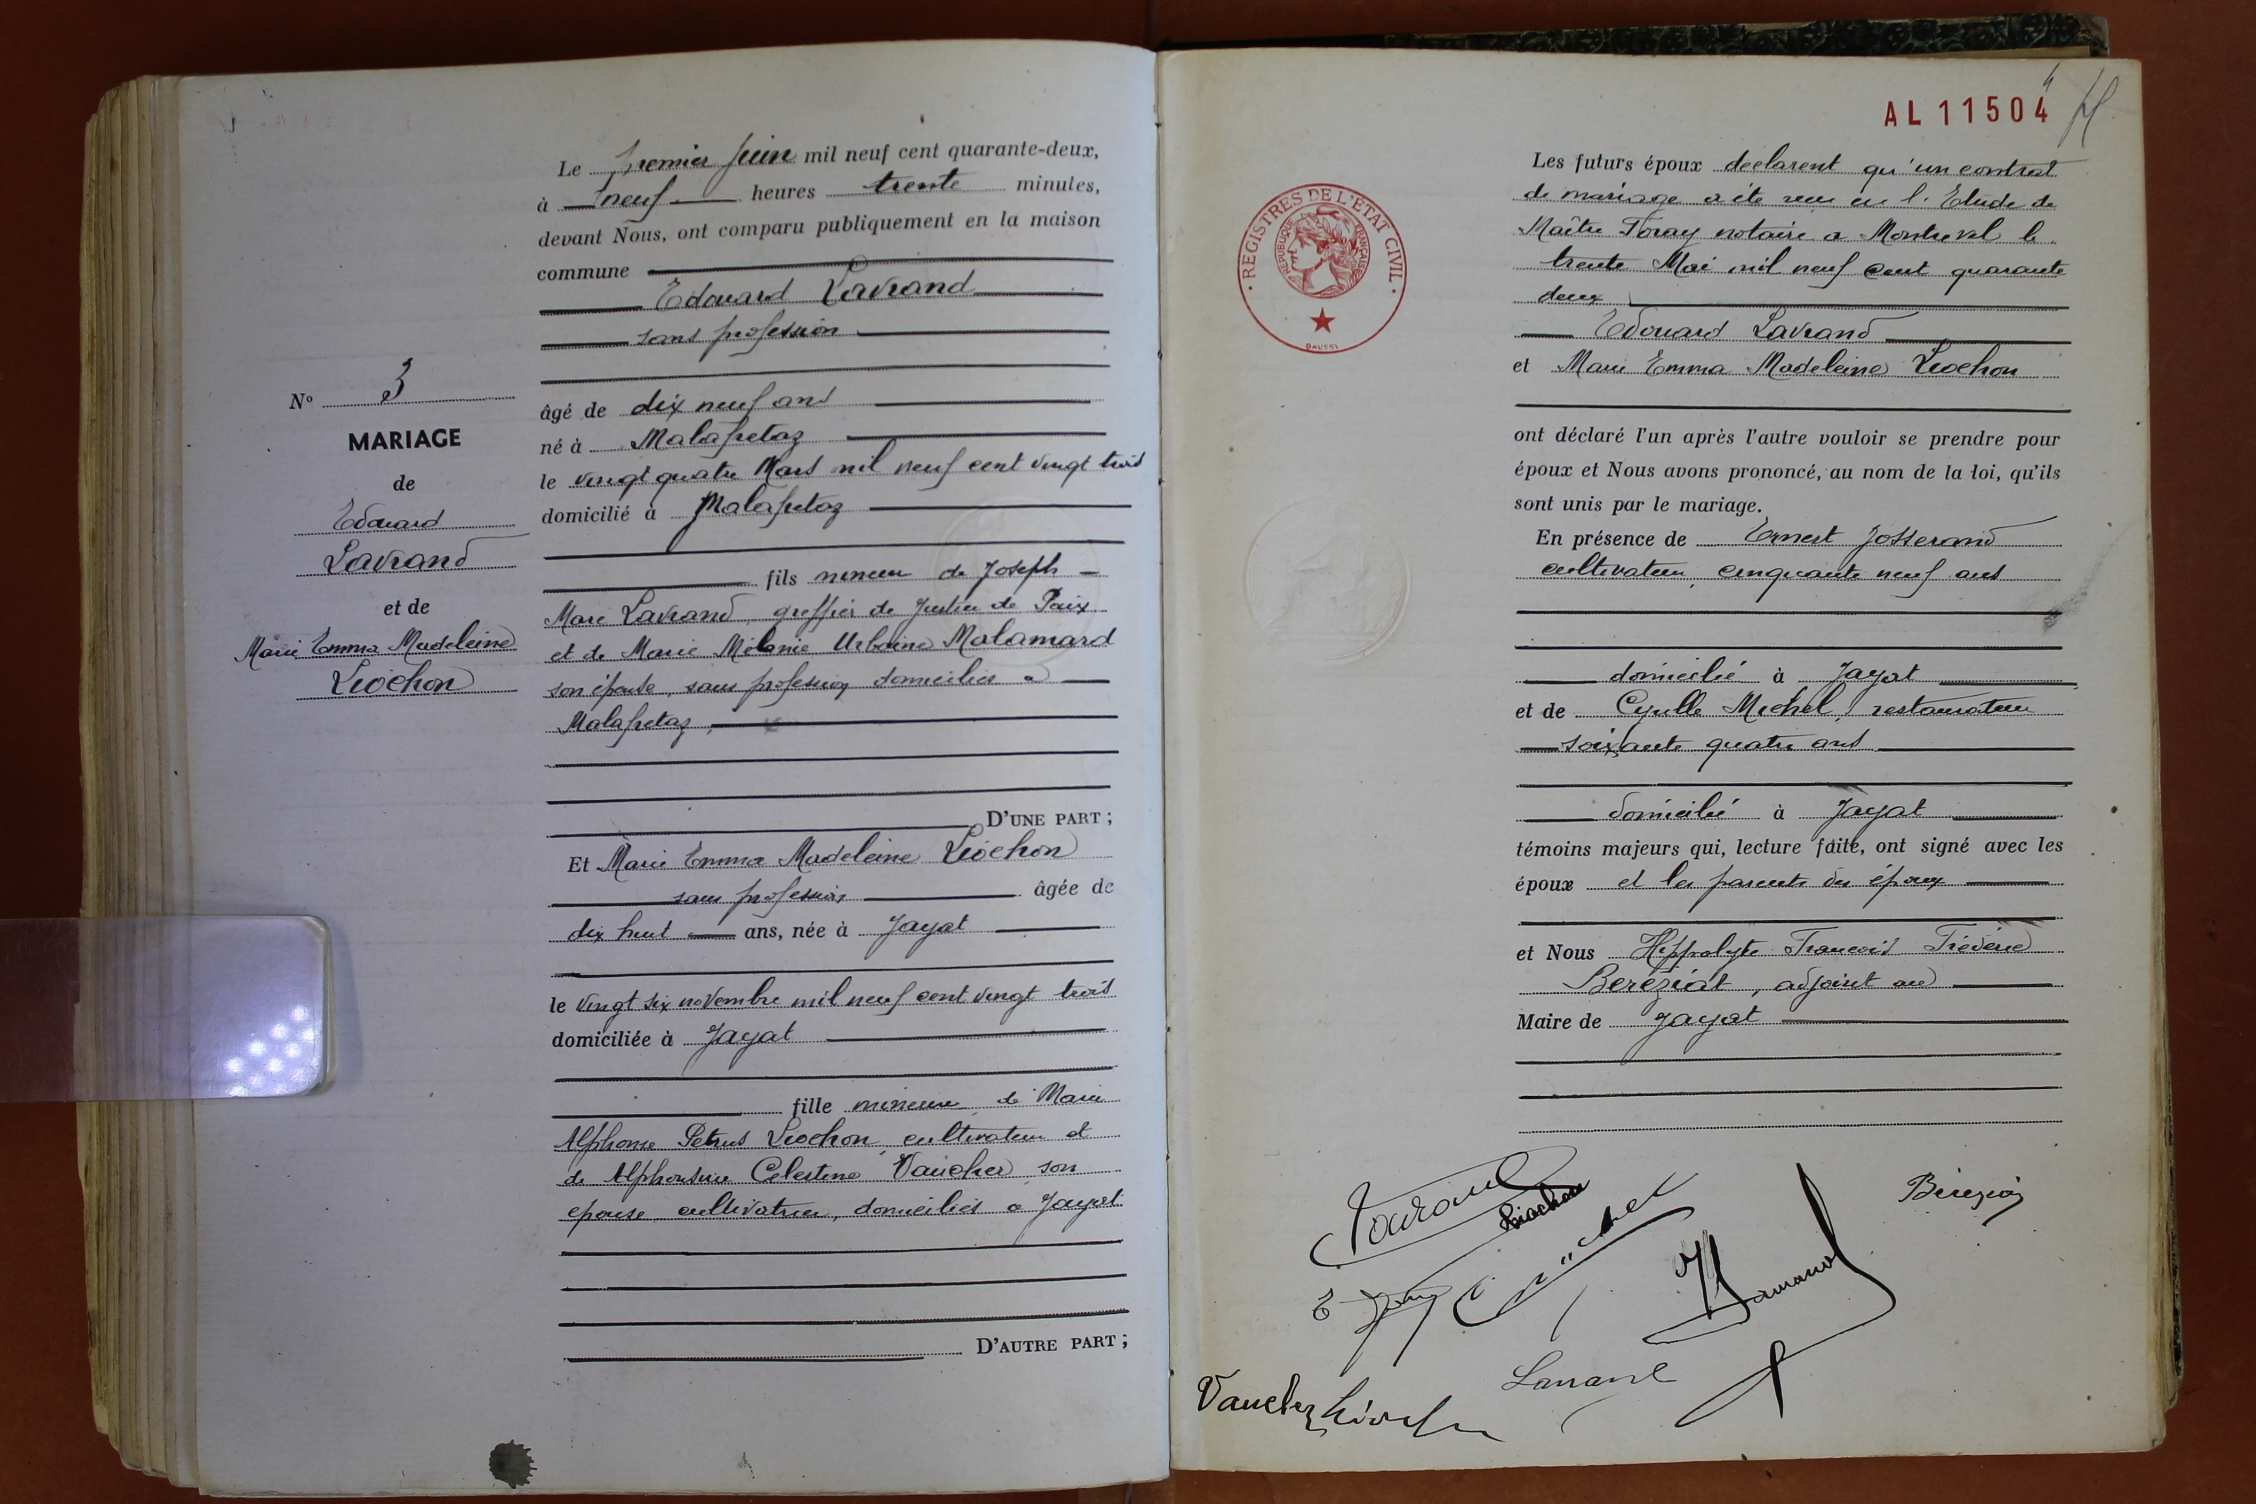 Le Premier Juin mil neuf cent quarante-deux,
à neuf heures trente minutes,
devant Nous, ont comparu publiquement en la maison
commune
Edouard Lavrand
sans profession
âgé de dix neuf ans
né à Malafretaz
le vingt quatre Mars mil neuf cent vingt trois
domicilié à Malafretaz
fils mineur de Joseph
Marc Lavrand, greffier de Justice de Paix
et de Marie Mélanie Urbaine Malamard
son épouse, sans profession domiciliés à
Malafretaz,
D'UNE PART ;
Nº 3
MARIAGE
de
Edouard
Lavrand
et de
Marie Emma Madeleine
Liochon
Et Marie Emma Madeleine Liochon
sans profession âgée de
dix huit ans, née à Jayat
le vingt six novembre mil neuf cent vingt trois
domiciliée à Jayat
fille mineure de Marie
Alphonse Petrus Liochon, cultivateur et
de Alphonsine Celestine Vaucher son
epouse cultivatrice, domiciliés à Jayat
D'AUTRE PART ;
AL 11504
REGISTRES DE L'ETAT CIVIL
REPUBLIQUE FRANÇAISE
Les futurs époux declarent qu'un contrat
de mariage a été reçu en l'Etude de
Maître Foray notaire a Montrevel le
trente Mai mil neuf cent quarante
deux
Edouard Lavrand
et Marie Emma Madeleine Liochon
ont déclaré l'un après l'autre vouloir se prendre pour
époux et Nous avons prononcé, au nom de la loi, qu'ils
sont unis par le mariage.
En présence de Ernest Josserand
cultivateur, cinquante neuf ans
domicilié à Jayat
et de Cyrille Michel, restaurateur
soixante quatre ans
domicilié à Jayat
témoins majeurs qui, lecture faite, ont signé avec les
époux et les parents des époux
et Nous Hippolyte François Fréderic
Bereziat, adjoint au
Maire de Jayat
Lavrand
Liochon
Michel
Bereziat
Lavrand
Vaucher Liochon